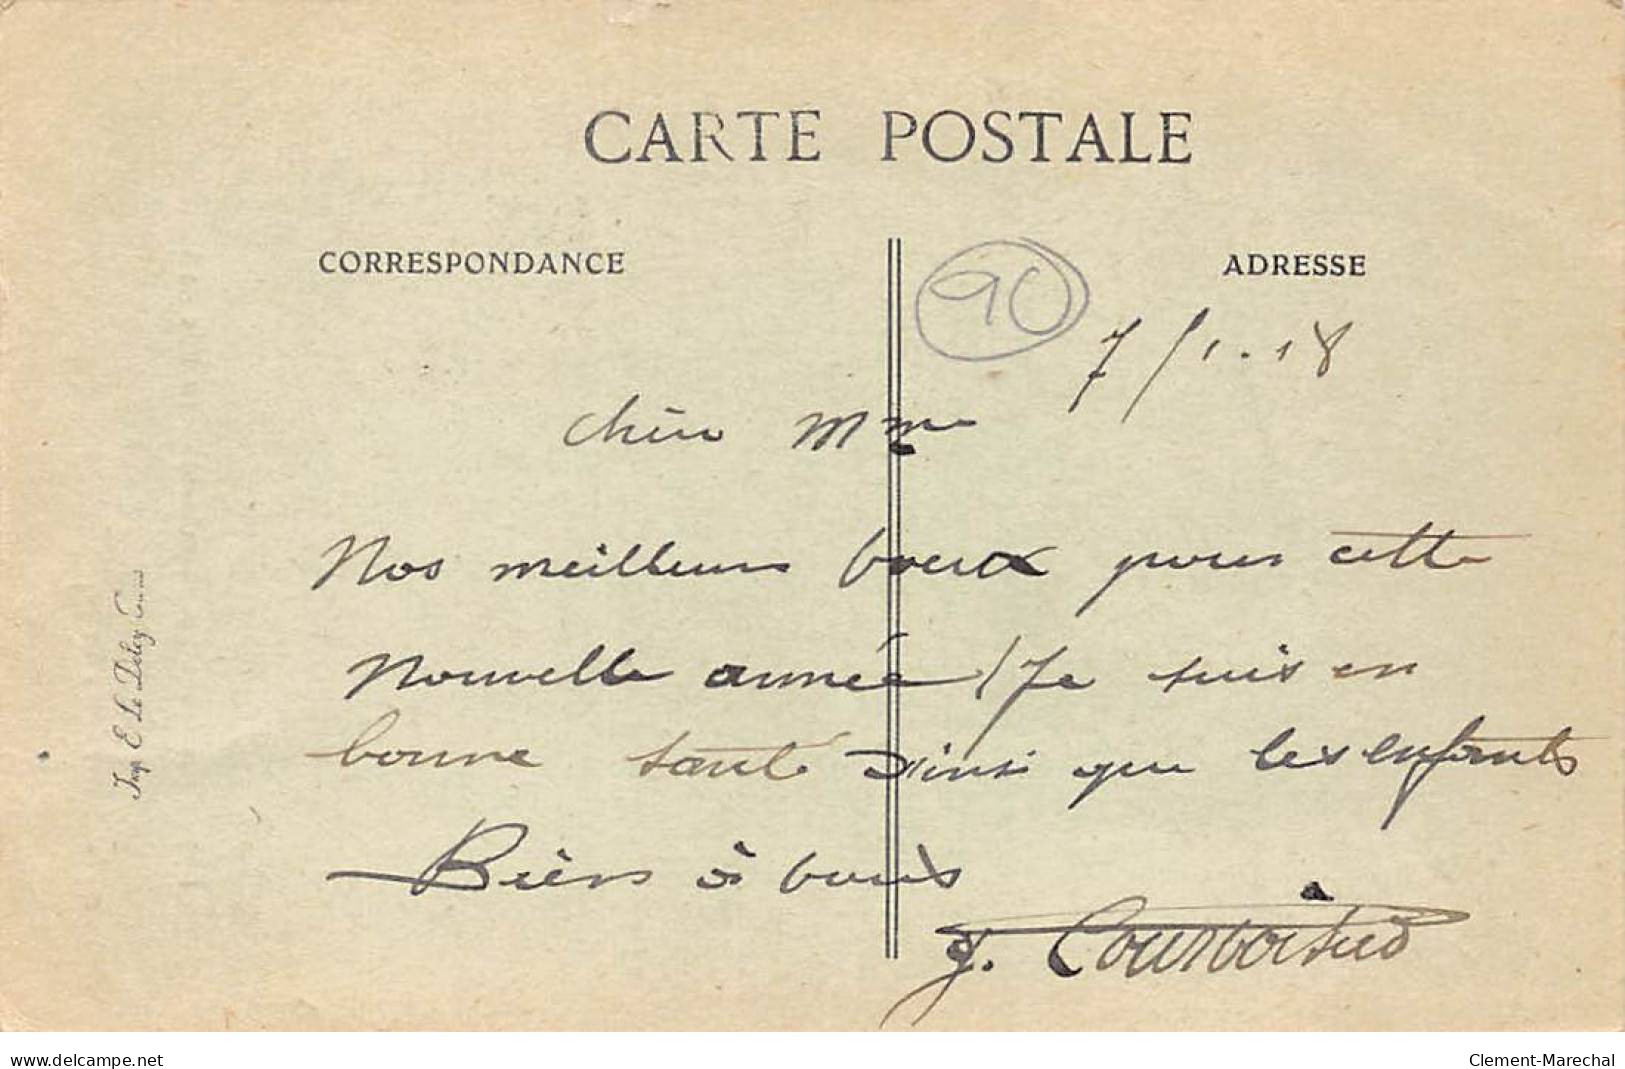 CARTE POSTALE
CORRESPONDANCE
ADRESSE
90
7/1.18
Chère Mme
Nos meilleurs voeux pour cette
Nouvelle année / Je suis en
bonne santé ainsi que les enfants
Bien à vous
J.
Imp. E. Le Deley
www.delcampe.net
Clement-Marechal